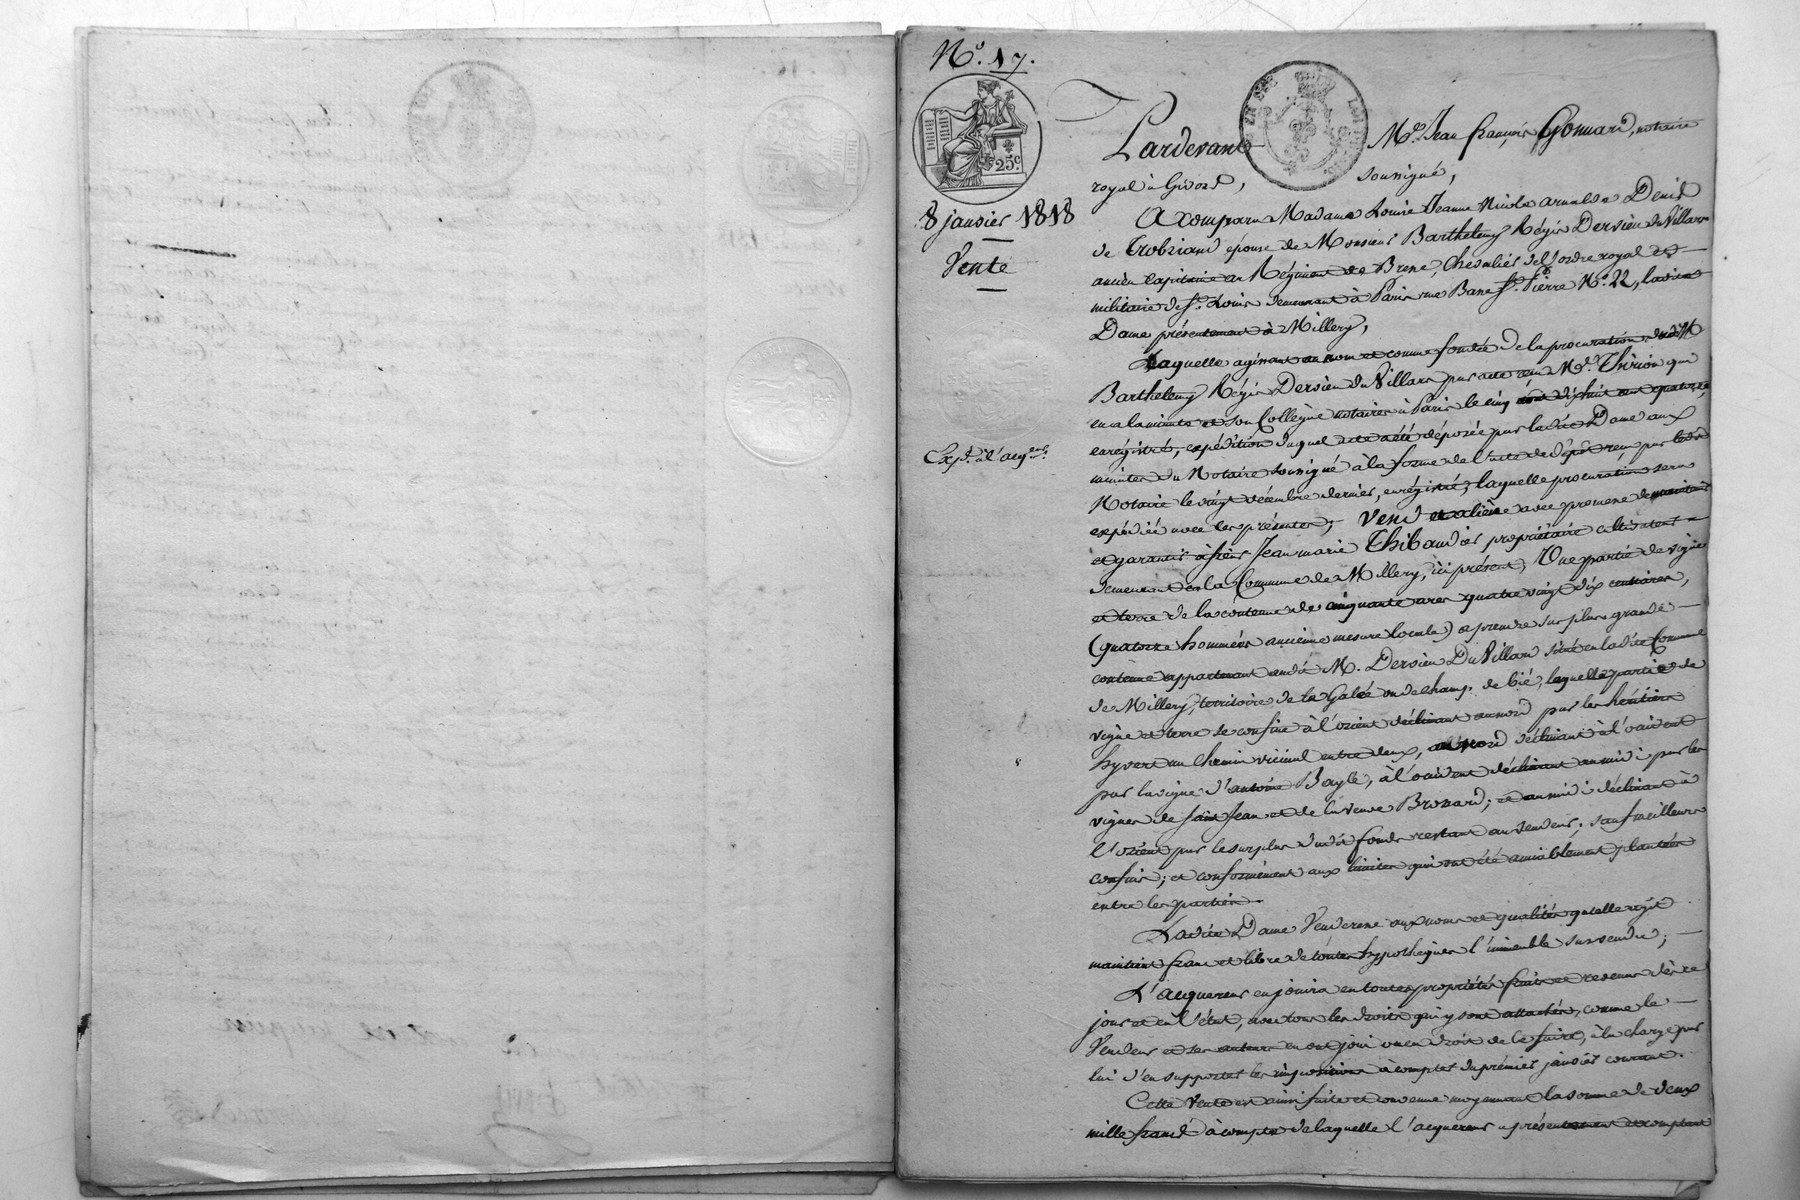 N.º 17.
25c
8 janvier 1818
Vente
Expd. à l'acqr.
Pardevant Me. Jean françois Gonnard, notaire
royal à Givors, soussigné,
A comparu Madame Louise Jeanne Nicole arnalde Denis
de Trobriand épouse de Monsieur Barthelemy Régis Dervieu du Villars
ancien Capitaine au Régiment de Bresse, Chevalier de l'ordre royal et
militaire de St. Louis demeurant à Paris rue Basse St. Pierre N.º 22, ladite
Dame présentement à Millery,
Laquelle agissant au nom et comme fondée de la procuration dudit M
Barthelemy Régis Dervieu du Villars par acte reçu Me. Thirion qui
en a la minute et son Collègue notaires à Paris le cinq dix huit cent quatorze,
enrégistré, expédition duquel acte a été déposée par ladite Dame aux
minutes du Notaire soussigné à la forme de l'acte de dépôt reçu par ledit
Notaire le vingt décembre dernier, enrégistré, laquelle procuration sera
expédiée avec les présentes; Vend et aliène avec promesse de maintenir
et garantir à sieur Jean marie Thibaudier propriétaire cultivateur
demeurant en la Commune de Millery, ici présent, Une partie de vigne
et terre de la contenue de cinquante ares quatre vingt dix centiares,
(quatorze hommées ancienne mesure locale) a prendre sur plus grande
contenue appartenant audit M. Dervieu Du Villard situé en ladite Commune
de Millery, territoire de la Galée ou de champ de bié, laquelle partie de
vigne et terre se confine à l'orient déclinant au nord par les héritiers
hyvert un chemin vicinal entre deux, au nord déclinant à l'occident
par la vigne d'antoine Bayle, à l'occident déclinant au midi par les
vignes de saint Jean et de la veuve Brossard; et au midi déclinant à
l'orient par le surplus dudit fonds restant au vendeur; sauf meilleurs
confins; et conformément aux limites qui ont été amiablement plantées
entre les parties.
Ladite Dame Venderesse aux noms et qualités qu'elle agit
maintient franc et libre de toutes hypothèques l'immeuble sus vendu;
L'acquereur en jouira en toutes propriétés fruits et revenus dès ce
jour et en l'état, avec tous les droits qui y sont attachés, comme le
Vendeur et ses auteurs en ont joui ou eu droit de le faire, à la charge par
lui d'en supporter les impositions à compter du premier janvier courant.
Cette Vente est ainsi faite et convenue moyennant la somme de deux
mille francs à compte de laquelle l'acquereur a présentement et comptant